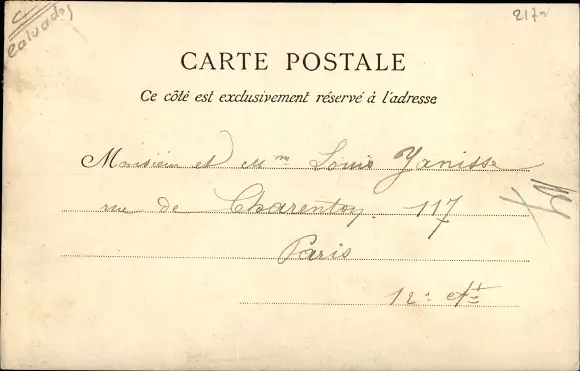 Calvados
217
CARTE POSTALE
Ce côté est exclusivement réservé à l'adresse
Monsieur et Mme Louis Yanisse
rue de Charenton. 117
Paris
12e Art